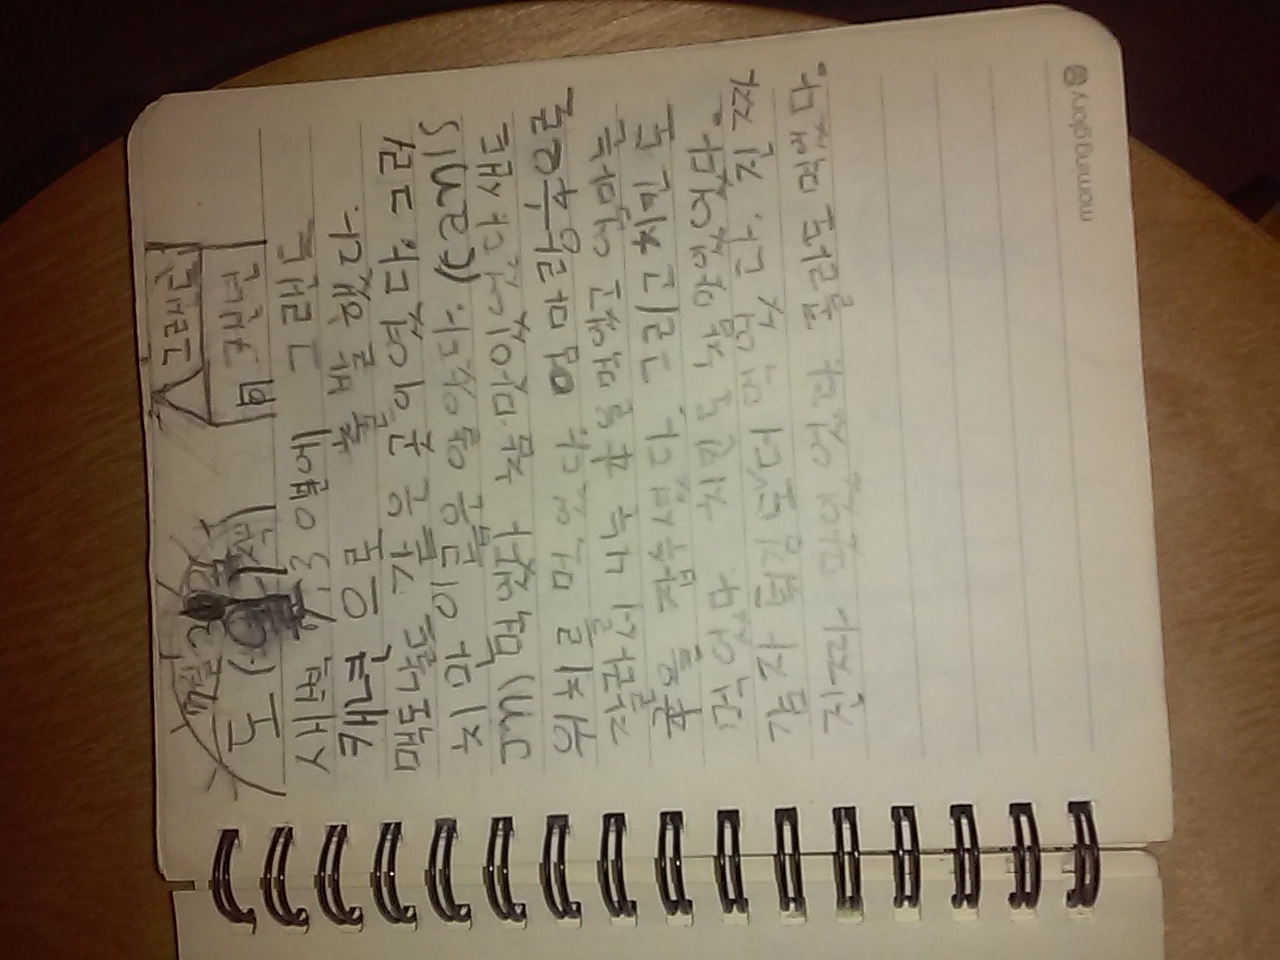 그랜드
캐년
새벽 에 그랜드
캐년 으로 출발했다.
맥도날드 같은 곳이였다. 그러
치만 이름은 알았다. (canls
Jm) 먹었다 참 맛있었다 샌드
위치를 먹었다. 엄마랑 1/4으로
잘라서 나누 을 먹었고 엄마는
을 잡수셨다. 그리고 치킨도
먹었다. 치킨도 참 맛있었다.
감자 튀김도 더 먹었다. 진짜
진짜 맛있었다. 콜라도 먹었다.
morning glory